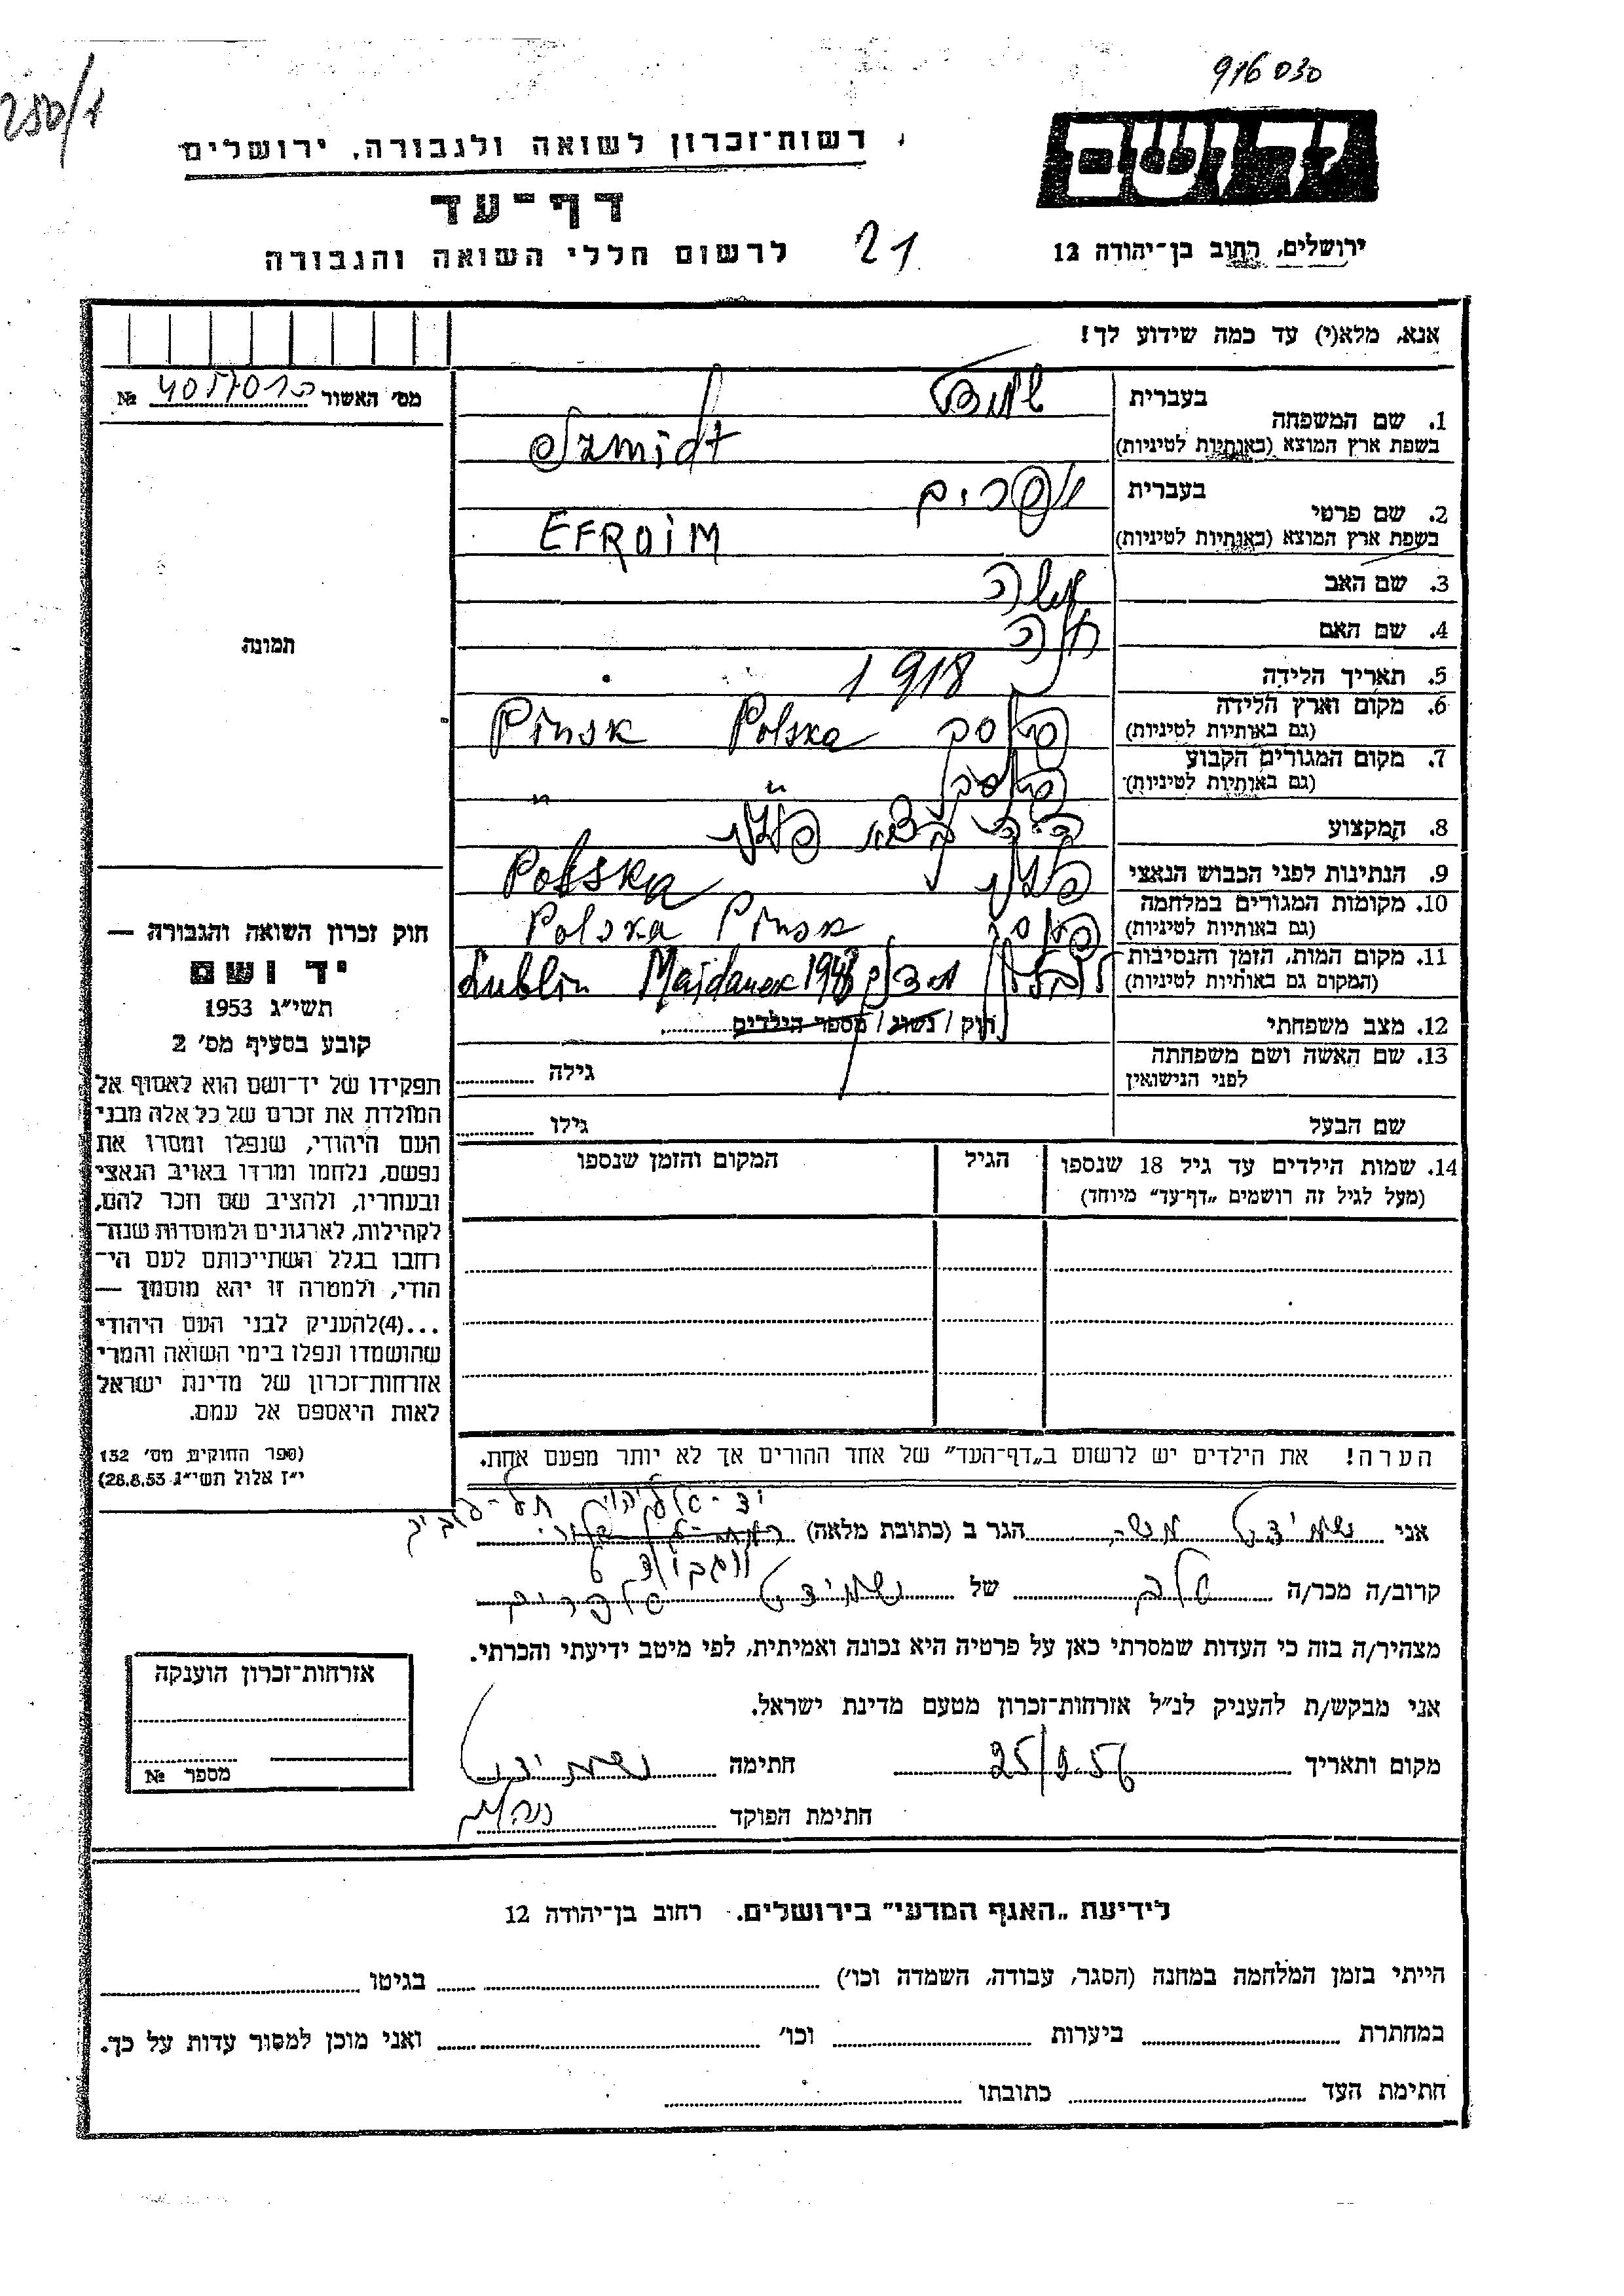 916030
280/1
רשות־זכרון לשואה ולגבורה, ירושלים
יד ושם
דף־עד
ירושלים, רחוב בן־יהודה 12
21
לרשום חללי השואה והגבורה
אנא, מלא(י) עד כמה שידוע לך!
מס׳ האשור №
1. שם המשפחה
בעברית
שמידט
בשפת ארץ המוצא (באותיות לטיניות)
Szmidt
2. שם פרטי
בעברית
אפרים
בשפת ארץ המוצא (באותיות לטיניות)
EFROIM
3. שם האב
משה
4. שם האם
חנה
5. תאריך הלידה
1918
6. מקום וארץ הלידה
(גם באותיות לטיניות)
פינסק Polska Pinsk
7. מקום המגורים הקבוע
(גם באותיות לטיניות)
פינסק " "
8. המקצוע
9. הנתינות לפני הכבוש הנאצי
פולני Polska
10. מקומות המגורים במלחמה
(גם באותיות לטיניות)
פינסק Pinsk Polska
11. מקום המות, הזמן והנסיבות
(המקום גם באותיות לטיניות)
לובלין מידנק Lublin Majdanek
12. מצב משפחתי
רוק / נשוי / מספר הילדים
13. שם האשה ושם משפחתה
לפני הנישואין
גילה
שם הבעל
גילו
14. שמות הילדים עד גיל 18 שנספו
(מעל לגיל זה רושמים „דף־עד״ מיוחד)
הגיל
המקום והזמן שנספו
תמונה
חוק זכרון השואה והגבורה —
יד ושם
תשי״ג 1953
קובע בסעיף מס׳ 2
תפקידו של יד־ושם הוא לאסוף אל
המולדת את זכרם של כל אלה מבני
העם היהודי, שנפלו ומסרו את
נפשם, נלחמו ומרדו באויב הנאצי
ובעוזריו, ולהציב שם וזכר להם,
לקהילות, לארגונים ולמוסדות שנח־
רבו בגלל השתייכותם לעם הי־
הודי, ולמטרה זו יהא מוסמך —
...(4)להעניק לבני העם היהודי
שהושמדו ונפלו בימי השואה והמרי
אזרחות־זכרון של מדינת ישראל
לאות היאספם אל עמם.
(ספר החוקים מס׳ 132
י״ז אלול תשי״ג 28.8.53)
הערה! את הילדים יש לרשום ב„דף־העד״ של אחד ההורים אך לא יותר מפעם אחת.
יד־אליהו תל־אביב
אני שמידט משה הגר ב (כתובת מלאה)
קרוב/ה מכר/ה של שמידט אפרים
מצהיר/ה בזה כי העדות שמסרתי כאן על פרטיה היא נכונה ואמיתית, לפי מיטב ידיעתי והכרתי.
אני מבקש/ת להעניק לנ״ל אזרחות־זכרון מטעם מדינת ישראל.
מקום ותאריך 25/9.56 חתימה שמידט
חתימת הפוקד
אזרחות־זכרון הוענקה
מספר №
לידיעת „האגף המדעי״ בירושלים. רחוב בן־יהודה 12
הייתי בזמן המלחמה במחנה (הסגר, עבודה, השמדה וכו׳) בגיטו
במחתרת ביערות וכו׳ ואני מוכן למסור עדות על כך.
חתימת העד כתובתו